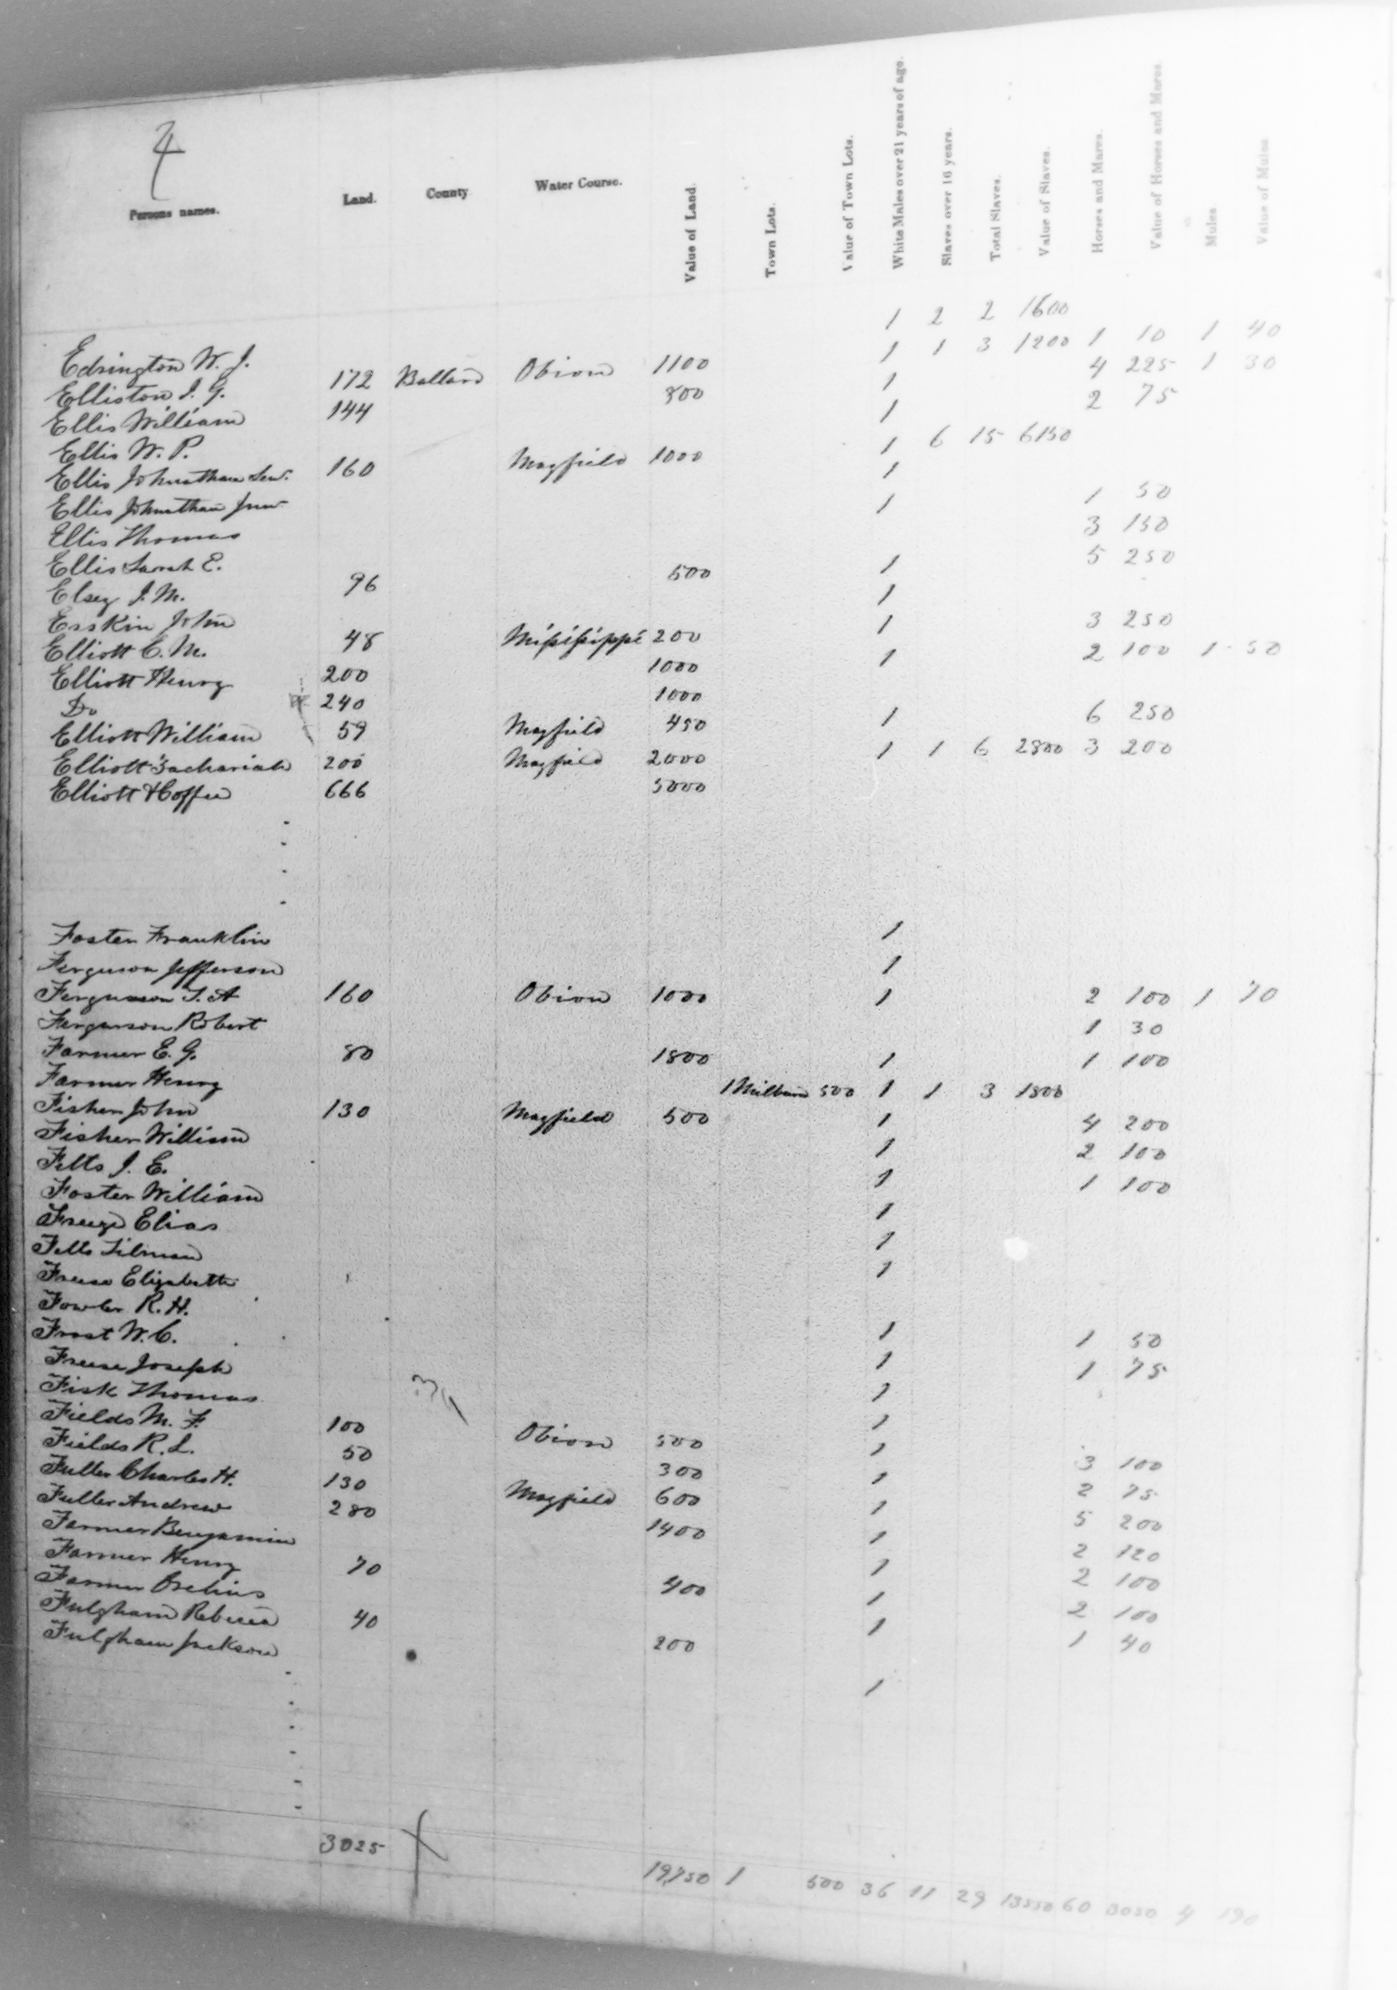 4
Persons names. Land. County Water Course. Value of Land. Town Lots. Value of Town Lots. White Males over 21 years of age. Slaves over 16 years. Total Slaves. Value of Slaves. Horses and Mares. Value of Horses and Mares. Mules Value of Mules
Edrington W. J. 1 2 2 1600
Elliston J. G. 172 Ballard Obion 1100 1 1 3 1200 1 10 1 40
Ellis William 144 800 1 4 225 1 30
Ellis W. P. 1 2 75
Ellis Johnathan Sen. 160 Mayfield 1000 1 6 15 6150
Ellis Johnathan Junr 1
Ellis Thomas 1 1 50
Ellis Sarah E. 3 150
Elsey J. M. 96 500 1 5 250
Erskin John 1
Elliott C. M. 48 Missisippi 200 1 3 250
Elliott Henry 200 1000 1 2 100 1 50
Do 240 1000
Elliott William 59 Mayfield 450 1 6 250
Elliott Zachariah 200 Mayfield 2000 1 1 6 2800 3 200
Elliott & Coffee 666 5000
Foster Franklin 1
Ferguson Jefferson 1
Ferguson T. A 160 Obion 1000 1 2 100 1 70
Ferguson Robert 1 30
Farmer E. G. 80 1800 1 1 100
Farmer Henry 1 Milburn 500 1 1 3 1800
Fisher John 130 Mayfield 500 1 4 200
Fisher William 1 2 100
Felts J. E. 1 1 100
Foster William 1
Freeze Elias 1
Felts Tilman 1
Freese Elizabeth
Fowler R. H. 1 1 50
Frost W. C. 1 1 75
Freese Joseph 1
Fisk Thomas 1
Fields M. F. 100 Obion 500 1 3 100
Fields R. L. 50 300 1 2 75
Fuller Charles H. 130 Mayfield 600 1 5 200
Fuller Andrew 280 1400 1 2 120
Farmer Benjamin 1 2 100
Farmer Henry 70 400 1 2 100
Farmer Orelius 1 1 40
Fulgham Rebecca 40 200
Fulgham Jackson 1
3025 19,750 1 500 36 11 29 13550 60 3050 4 190